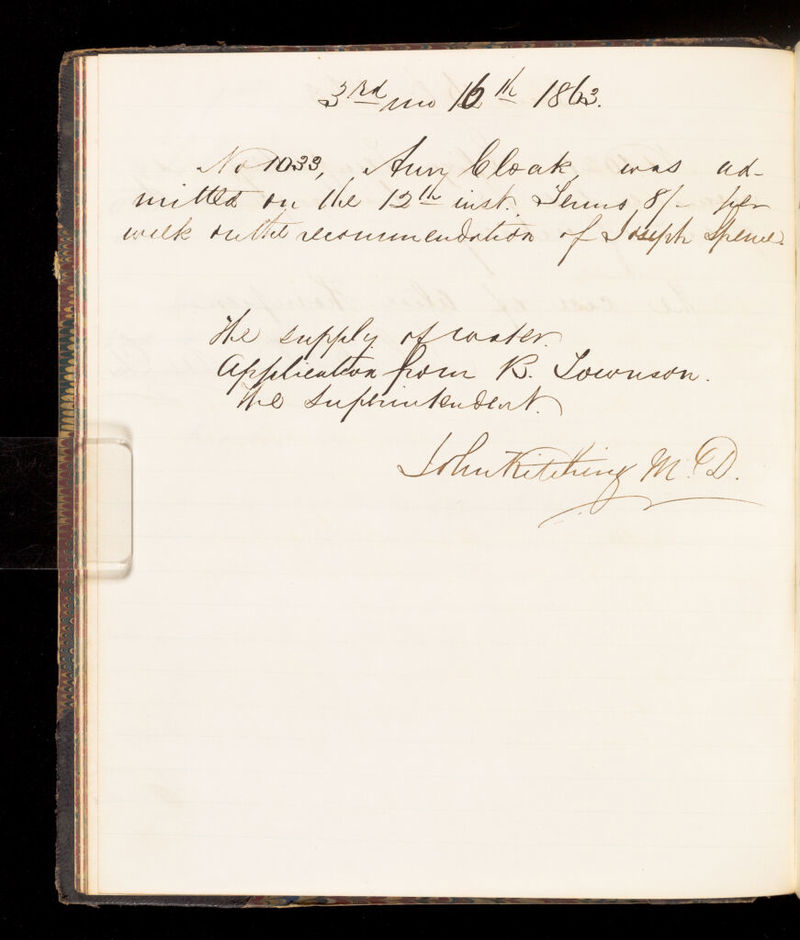 3rd mo 16th 1863.
No 1033, Ann Cloak, was ad-
mitted on the 12th inst. Terms 8/- per
week on the recommendation of Joseph Spence.
The supply of water.
Application from B. Townson.
The Superintendent.
John Kitching M.D.